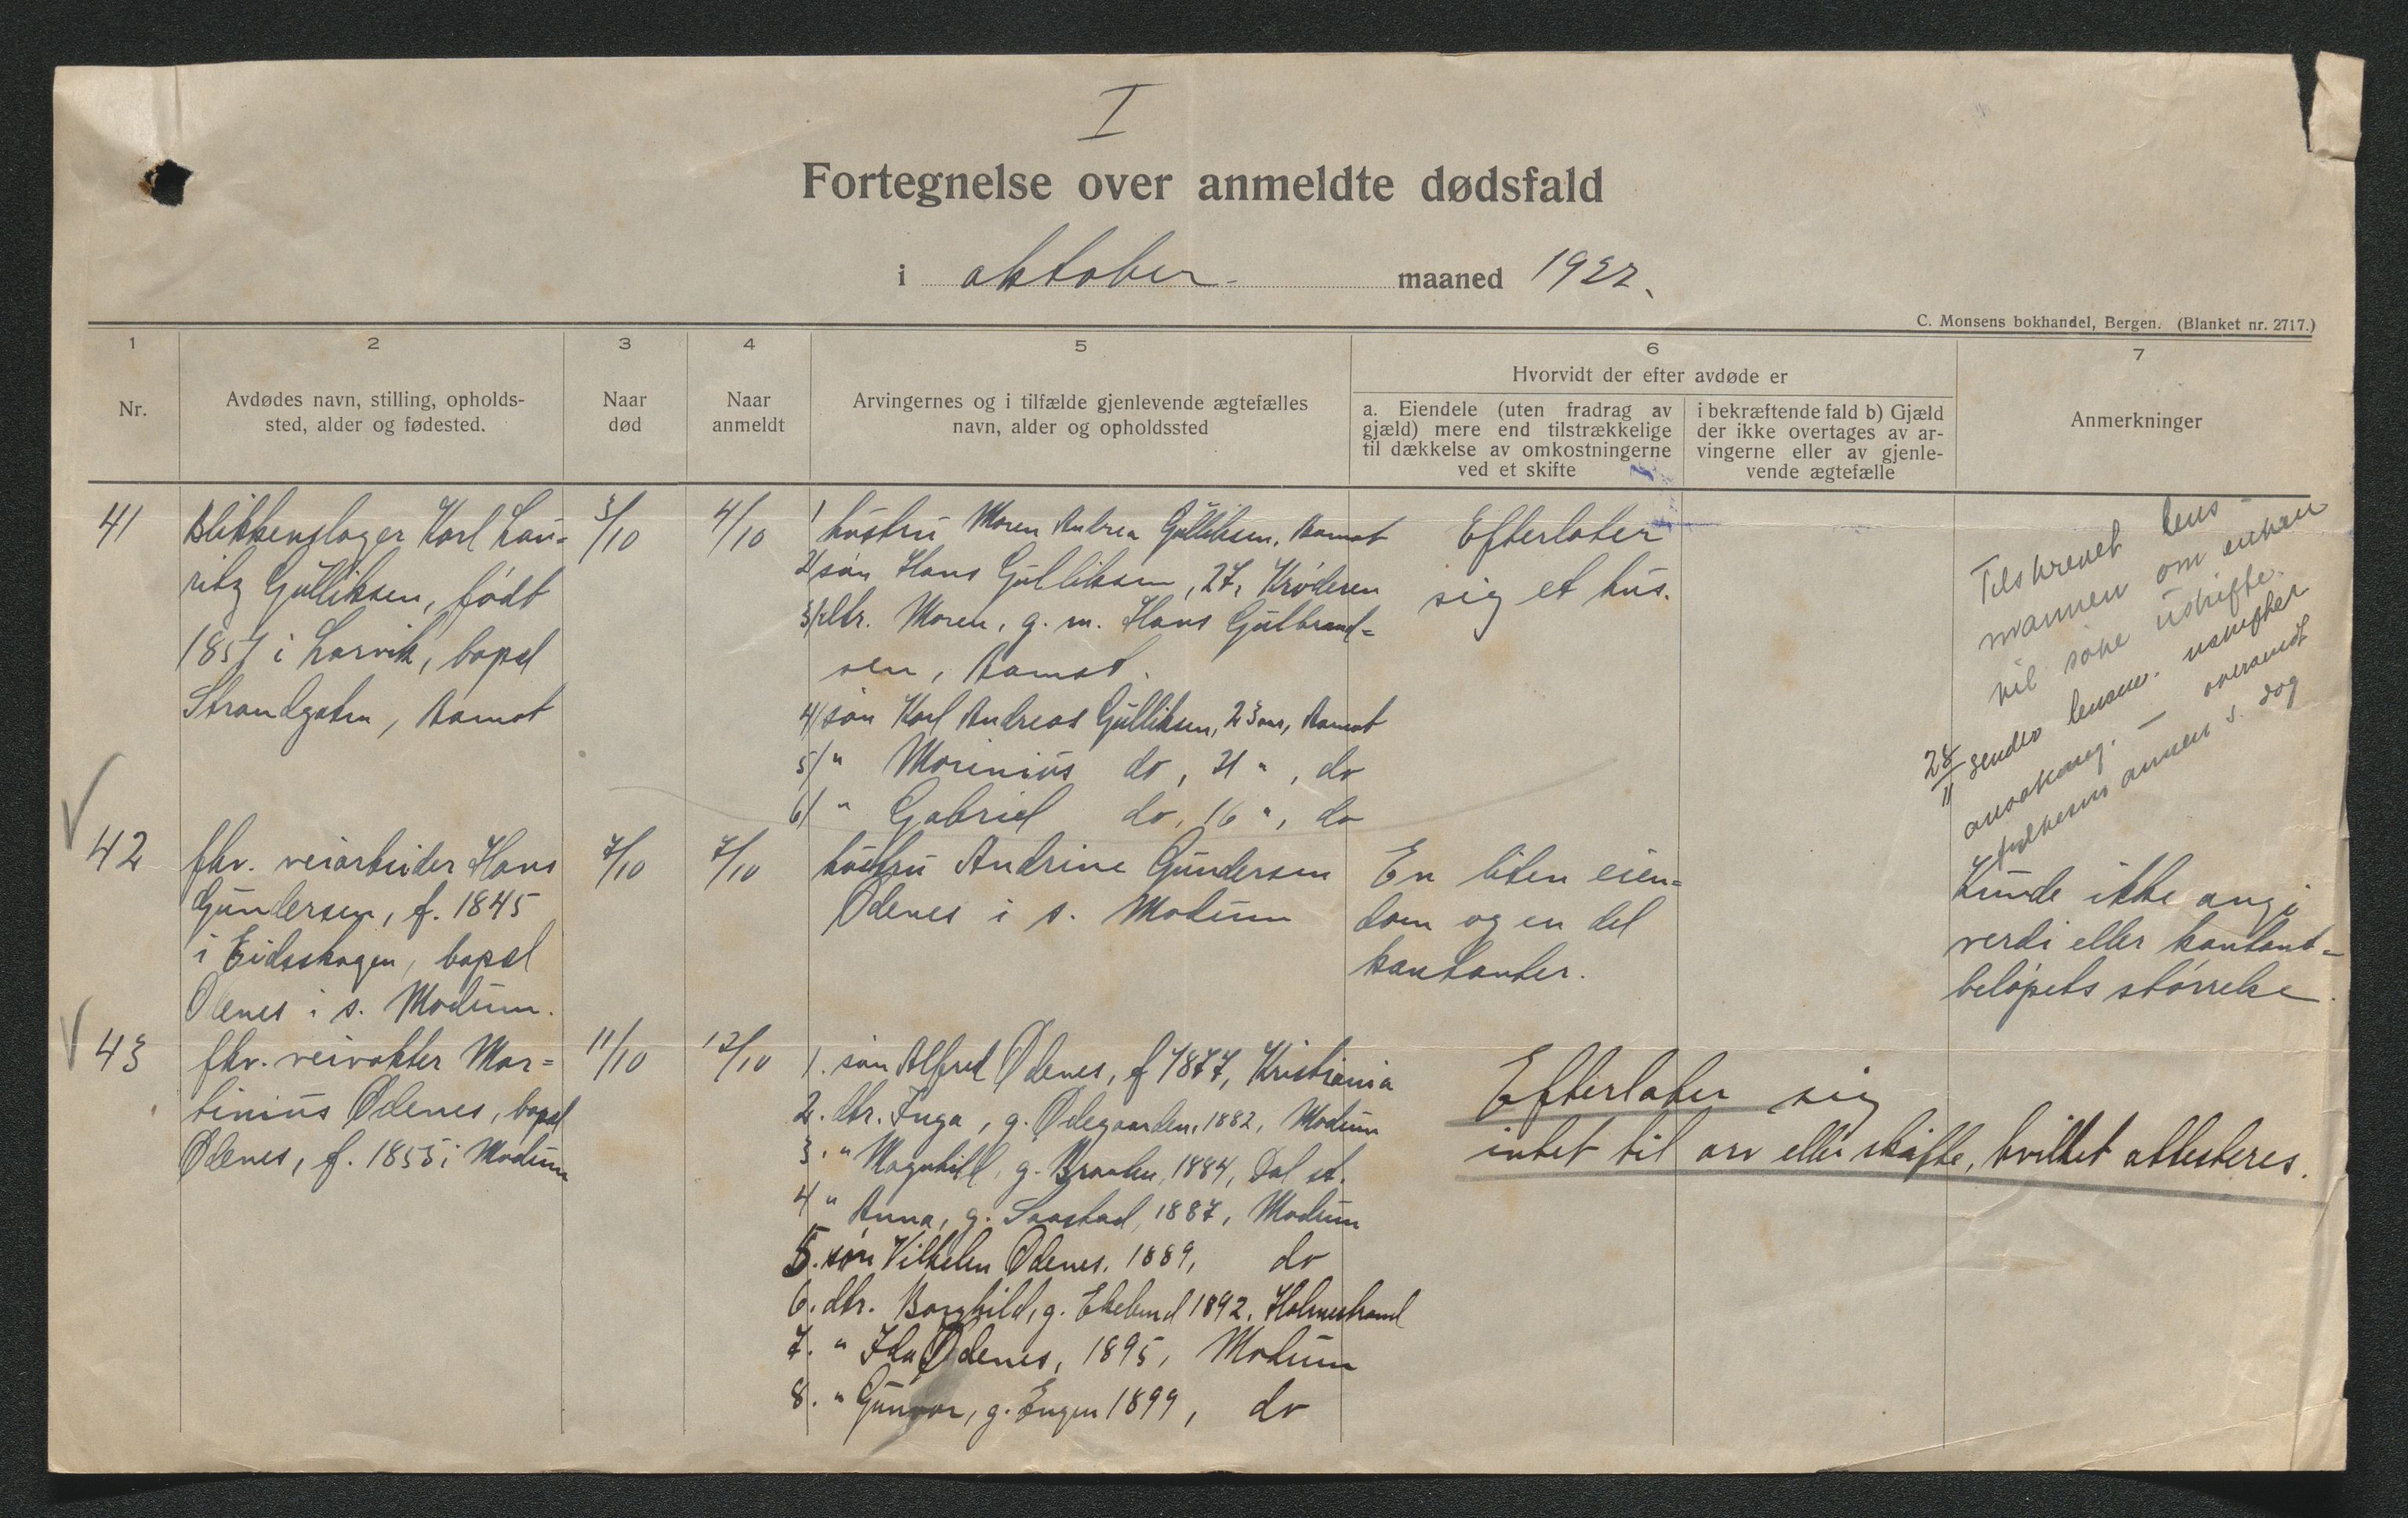 I
Fortegnelse over anmeldte dødsfald
i oktober maaned 1922.
C. Monsens bokhandel, Bergen. (Blanket nr. 2717.)
1
2
3
4
5
6
7
Nr.
Avdødes navn, stilling, opholds-
sted, alder og fødested.
Naar
død
Naar
anmeldt
Arvingernes og i tilfælde gjenlevende ægtefælles
navn, alder og opholdssted
Hvorvidt der efter avdøde er
a. Eiendele (uten fradrag av
gjæld) mere end tilstrækkelige
til dækkelse av omkostningerne
ved et skifte
i bekræftende fald b) Gjæld
der ikke overtages av ar-
vingerne eller av gjenle-
vende ægtefælle
Anmerkninger
41
Blikkenslager Karl Lau-
ritz Gulliksen, født
1857 i Larvik, bopæl
Strandgaten, Aamot
3/10
4/10
1 hustru Maren Andrea Gulliksen, Aamot
2/ søn Hans Gulliksen, 27, Krøderen
3/ dtr. Maren, g. m. Hans Gulbrand-
sen, Aamot.
4/ søn Karl Andreas Gulliksen, 23 aar, Aamot
5/ " Marinius do, 21 ", do
6/ " Gabriel do, 16 ", do
Efterlater
sig et hus.
Tilskrevet lens-
mannen om enken
vil søke uskifte.
28/11 sendes lensm. uskifte
ansøkning. — oversendt
s. dag
42
fhv. veiarbeider Hans
Gundersen, f. 1845
i Eidsskogen, bopæl
Ødenes i s. Modum.
7/10
7/10
hustru Andrine Gundersen
Ødenes i s. Modum
En liten eien-
dom og en del
kontanter.
Kunde ikke angi
verdi eller kontant-
beløpets størrelse.
43
fhv. veivokter Mar-
tinius Ødenes, bopæl
Ødenes, f. 1855 i Modum
11/10
12/10
1. søn Alfred Ødenes, f 1877, Kristiania
2. dtr. Inga, g. Ødegaarden, 1882, Modum
3. " Magnhild, g. Braaten, 1884, Dal st.
4 " Anna, g. Saastad, 1887, Modum
5. søn Vilhelm Ødenes, 1889, do
6. dtr. Borghild, g. Ekelund 1892, Holmestrand
7. " Ida Ødenes, 1895, Modum
8. " Gunvor, g. Engen 1899, do
Efterlater sig
intet til arv eller skifte, hvilket attesteres.